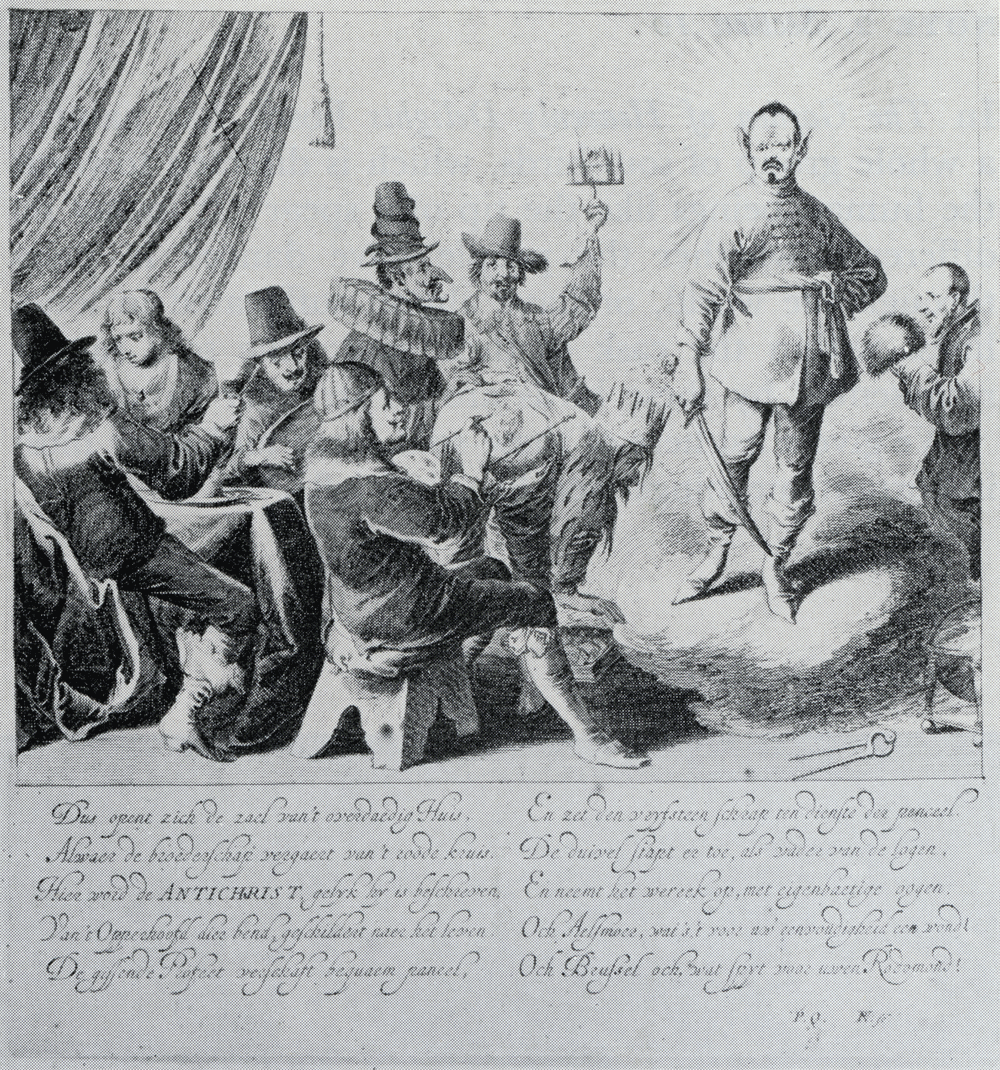 Dus opent zich de zael van't overdaedig Huis,
Alwaer de broederschap vergaert van't roode kruis.
Hier word de ANTICHRIST, gelyk hy is beschreven,
Van't Opperhoofd dier bend, geschildert naer het leven.
De gyssende Profeet verschaft bequaem paneel,
En zet den vryfsteen schrap ten dienste der penceel.
De duivel stapt er toe, als vader van de logen,
En neemt het wereck op, met eigenbaetige oogen.
Och Aelsmoer, wat is't voor uw eenvoudigheid een wond!
Och Beussel och, wat spyt voor uwen Rodomond!
P. Q.